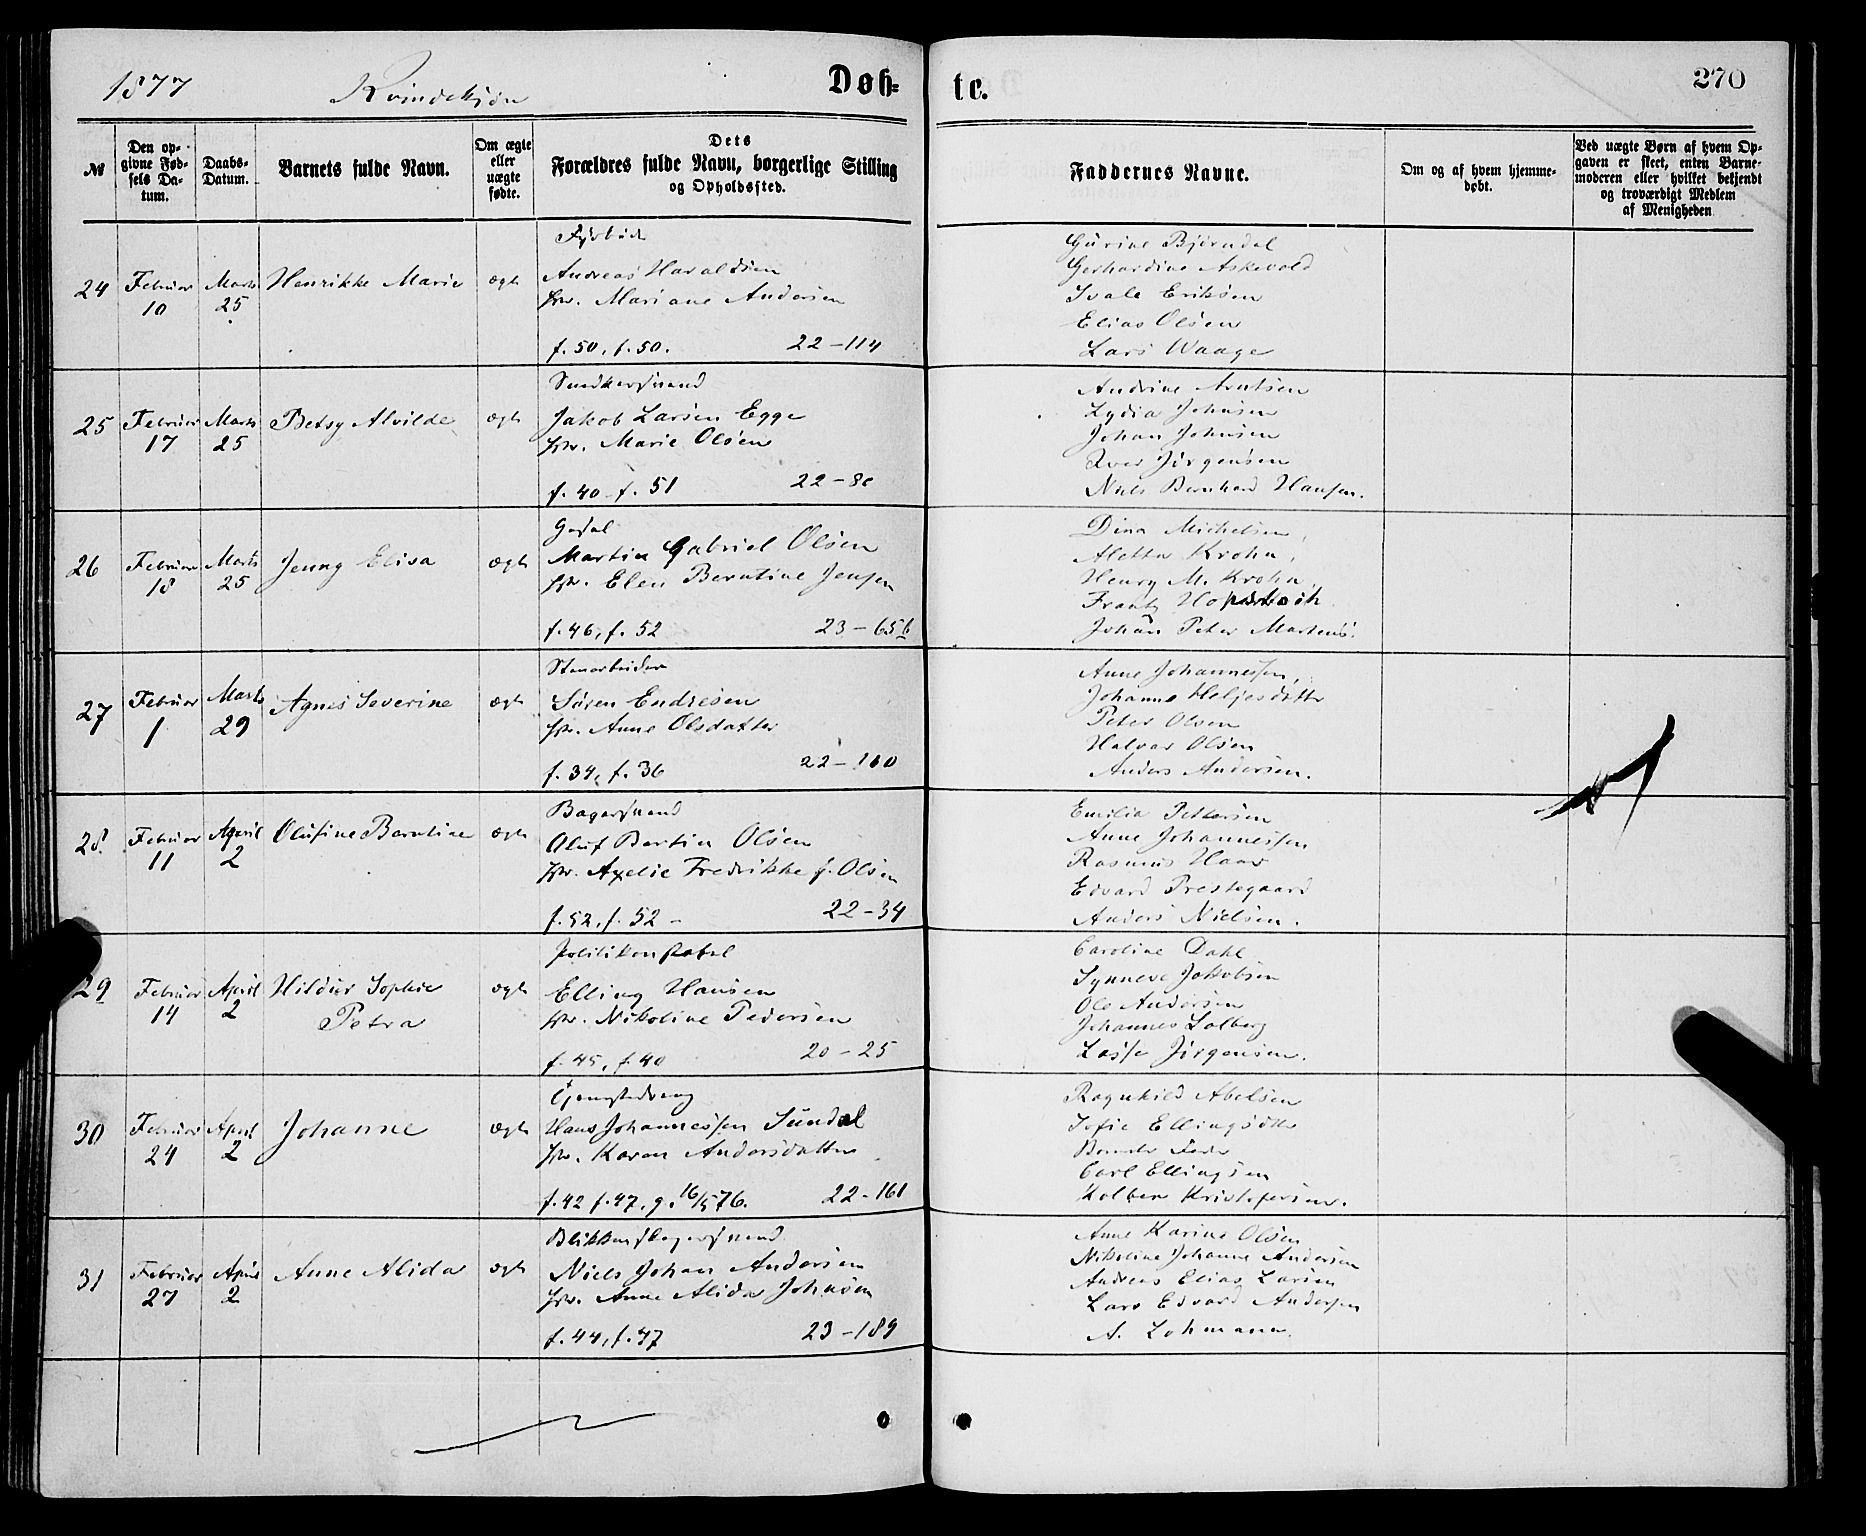 1877 Kvindekjøn Døb- te. 270
№ Den opgivne Fødsels Datum. Daabs-Datum. Barnets fulde Navn. Om ægte eller uægte fødte. Dets Forældres fulde Navn, borgerlige Stilling og Opholdssted. Faddernes Navne. Om og af hvem hjemmedøbt. Ved uægte Børn af hvem Opgaven er skeet, enten Barnemoderen eller hvilket bekjendt og troværdigt Medlem af Menigheden
24 Februar 10 Marts 25 Henrikke Marie ægte
Fyrbøder
Andreas Haraldsen
Hstr. Mariane Andersen
f. 50, f. 50. 22-114
Gurine Bjørndal
Gerhardine Askevold
Ivale Eriksen
Elias Olsen
Lars Waage
25 Februar 17 Marts 25 Betsy Alvilde ægte
Snedkersvend
Jakob Larsen Egge
Hstr. Marie Olsen
f. 40 f. 51 22-80
Andrine Arntsen
Lydia Johnsen
Johan Johnsen
Iver Jørgensen
Niels Bernhard Hansen.
26 Februar 18 Marts 25 Jenny Elisa ægte
Martin Gabriel Olsen
Hstr. Elen Berntine Jensen
f. 46, f. 52 23-65b
Dina Michelsen,
Aletta Krohn,
Henry M. Krohn,
Frantz
Johan Peter Martens.
27 Februar 1 Marts 29 Agnes Severine ægte
Stenarbeider
Søren Endresen
Hstr. Anne Olsdatter
f. 34, f. 36 22-160
Anne Johannessen,
Johanne Heljesdatter
Peter Olsen
Halvor Olsen
Anders Andersen.
28. Februar 11 April 2 Olufine Berntine ægte
Bagersvend
Oluf Bertin Olsen
Hstr. Axelie Fredrikke f. Olsen
f. 52, f. 52 - 22-34
Emilia Pettersen
Anne Johannessen
Rasmus Haar
Edvard Prestegaard
Anders Nielsen.
29 Februar 14 April 2 Hildur Sophie
Petra ægte
Politikonstabel
Elling Hansen
Hstr. Nikoline Pedersen
f. 45, f. 40 20-25
Caroline Dahl
Synneve Jakobsen
Ole Andersen
Johannes Solberg
Lasse Jørgensen.
30 Februar 24 April 2 Johanne ægte
Hans Johannessen Sundal
Hstr. Karen Andersdatter
f. 42 f. 47, g. 16/5 76. 22-161
Ragnhild Abelsen
Sofie Ellingsdtr
Carl Ellingsen
Kolben Kristofersen.
31 Februar 27 April 2 Anne Alida ægte
Blikkenslagersvend
Niels Johan Andersen
Hstr. Anne Alida Johnsen
f. 44, f. 47 23-189
Anne Karine Olsen
Nikoline Johanne Andersen
Andreas Elias Larsen
Lars Edvard Andersen
A. Lohmann.